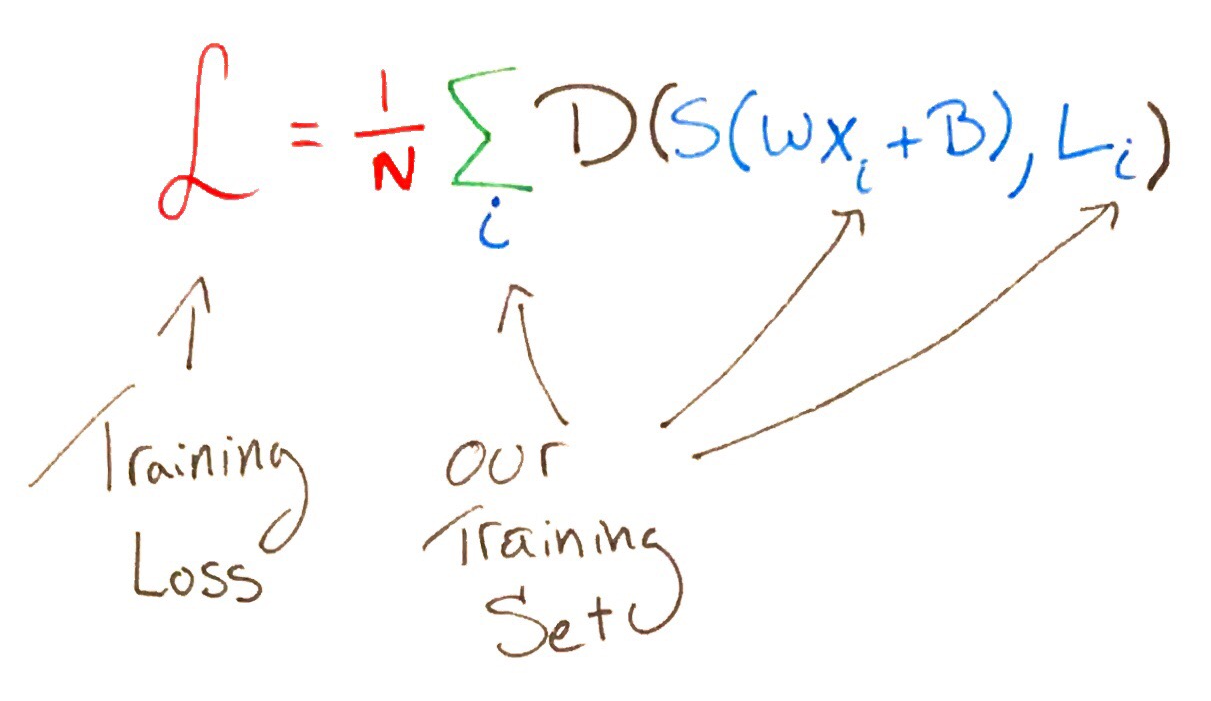 ℒ = 1/N Σ_i D(S(wx_i + B), L_i)
Training
Loss
our
Training
Set